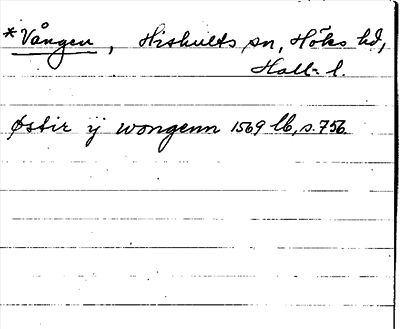 *Vången, Hishults sn, Höks hd,
Hall. l.
Østir ij wongenn 1569 lb, s. 756